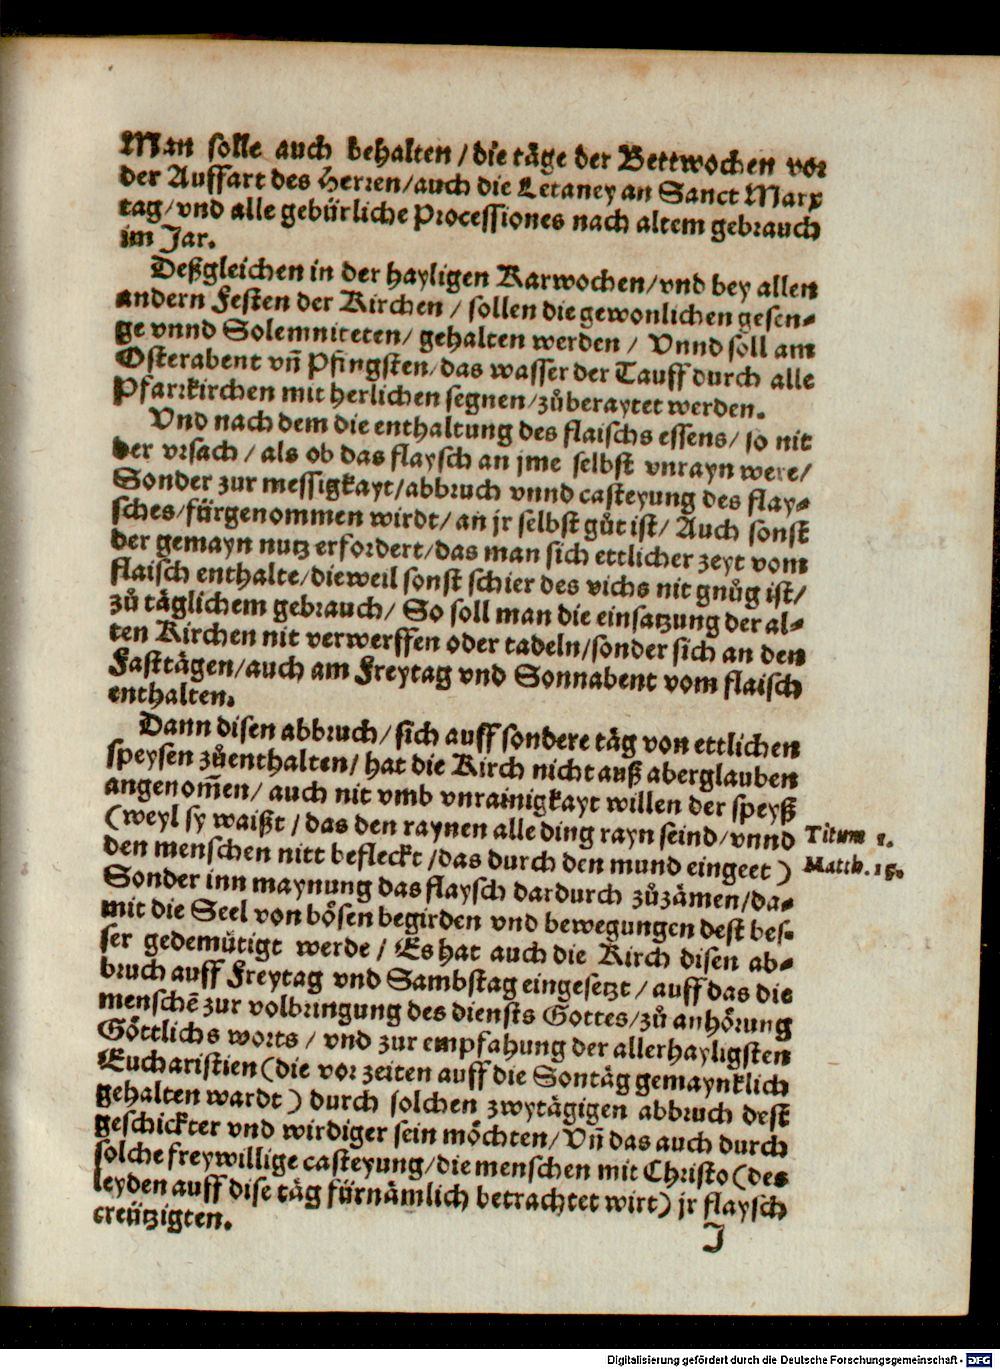 Man solle auch behalten / die täge der Bettwochen vor
der Auffart des Herren/auch die Letaney an Sanct Marx
tag/vnd alle gebürliche Processiones nach altem gebrauch
im Jar.
Deßgleichen in der hayligen Karwochen/vnd bey allen
andern Festen der Kirchen / sollen die gewonlichen gesen-
ge vnnd Solemniteten/ gehalten werden / Vnnd soll am
Osterabent vñ Pfingsten/das wasser der Tauff durch alle
Pfarrkirchen mit herlichen segnen/zůberaytet werden.
Vnd nach dem die enthaltung des flaischs essens/ so nit
der vrsach / als ob das flaysch an jme selbst vnrayn were/
Sonder zur messigkayt/abbruch vnnd casteyung des flay-
sches/fürgenommen wirdt/an jr selbst gůt ist/ Auch sonst
der gemayn nutz erfordert/das man sich ettlicher zeyt vom
flaisch enthalte/dieweil sonst schier des vichs nit gnůg ist/
zů täglichem gebrauch/ So soll man die einsatzung der al-
ten Kirchen nit verwerffen oder tadeln/sonder sich an den
Fasttägen/auch am Freytag vnd Sonnabent vom flaisch
enthalten.
Dann disen abbruch/sich auff sondere täg von ettlichen
speysen zůenthalten/ hat die Kirch nicht auß aberglauben
angenom̃en/ auch nit vmb vnrainigkayt willen der speyß
(weyl sy waißt / das den raynen alle ding rayn seind/vnnd
Titum 1.
den menschen nitt befleckt /das durch den mund eingeet )
Matth. 15.
Sonder inn maynung das flaysch dardurch zůzämen/da-
mit die Seel von bösen begirden vnd bewegungen dest bes-
ser gedemütigt werde / Es hat auch die Kirch disen ab-
bruch auff Freytag vnd Sambstag eingesetzt / auff das die
menschẽ zur volbringung des diensts Gottes/zů anhörung
Göttlichs worts / vnd zur empfahung der allerhayligsten
Eucharistien (die vor zeiten auff die Sontäg gemaynklich
gehalten wardt ) durch solchen zwytägigen abbruch dest
geschickter vnd wirdiger sein möchten/ Vñ das auch durch
solche freywillige casteyung/die menschen mit Christo (des
leyden auff dise täg fürnämlich betrachtet wirt) jr flaysch
creützigten.
J
Digitalisierung gefördert durch die Deutsche Forschungsgemeinschaft - DFG